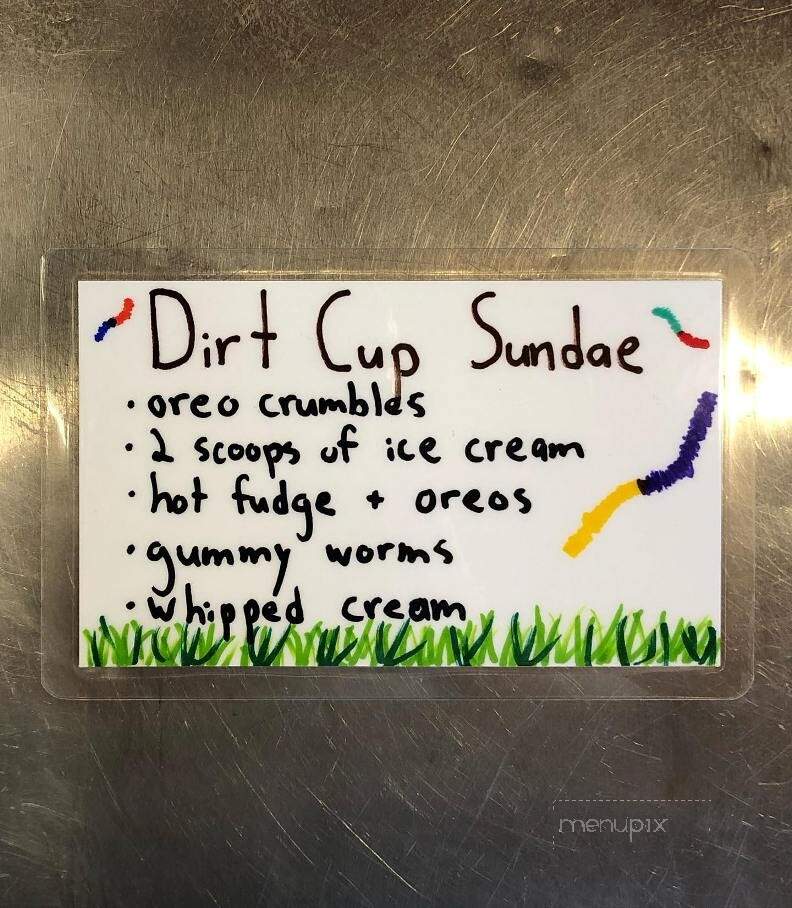 Dirt Cup Sundae
• oreo crumbles
• 2 scoops of ice cream
• hot fudge + oreos
• gummy worms
• whipped cream
menupix